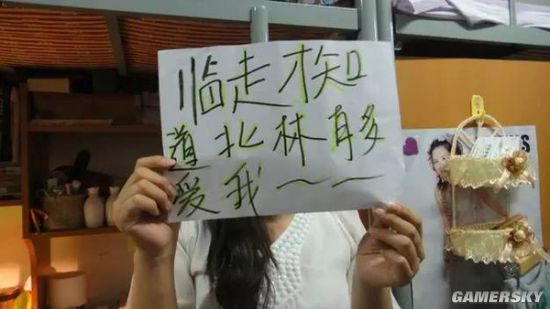 临走才知
道北林有多
爱我～～
GAMERSKY